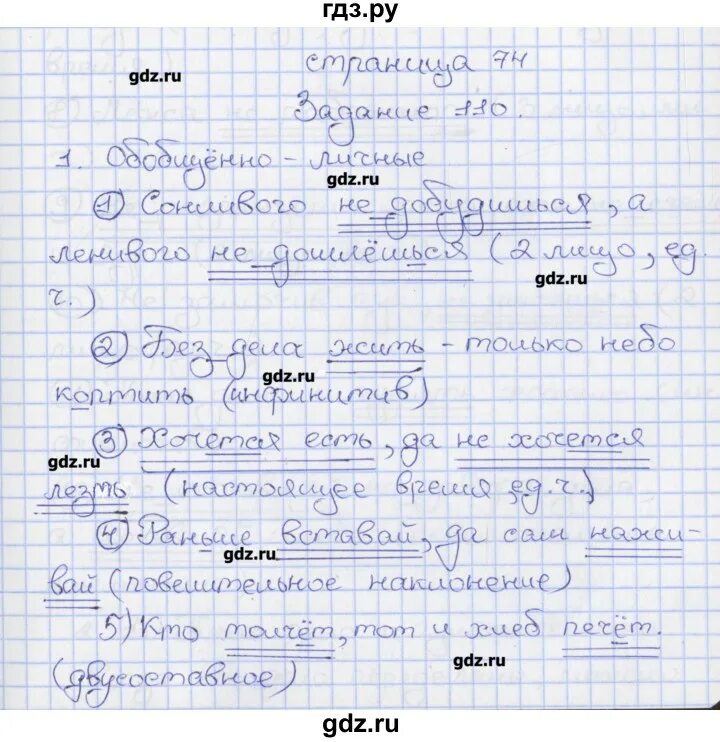 гдз.ру
страница 74
gdz.ru
Задание 110.
1. Обобщённо - личные
gdz.ru
1) Сонливого не добудишься, а
ленивого не дошлёшься (2 лицо, ед.
gdz.ru
ч.)
2) Без дела жить - только небо
gdz.ru
коптить (инфинитив)
3) Хочется есть, да не хочется
gdz.ru
лезть (настоящее время, ед.ч.)
4) Раньше вставай, да сам нажи-
gdz.ru
вай (повелительное наклонение)
5) Кто толчёт, тот и хлеб печёт.
gdz.ru
(двусоставное)
gdz.ru